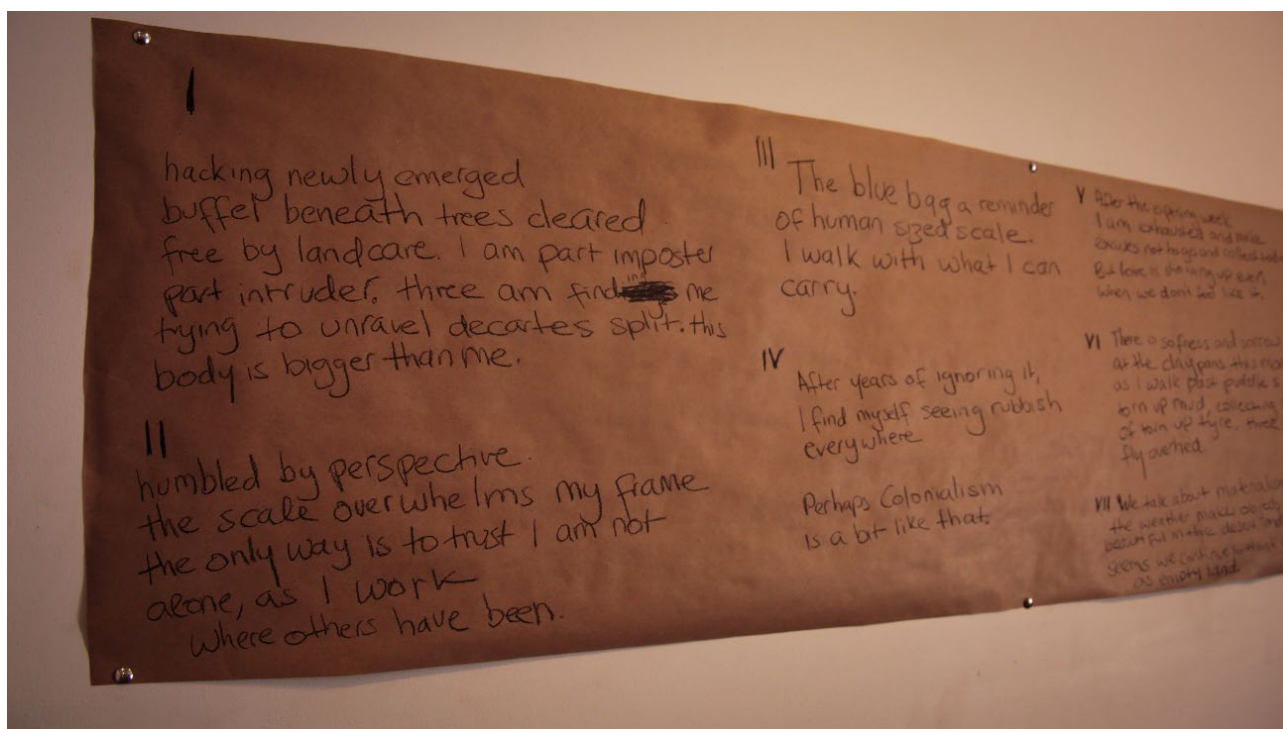 I
hacking newly emerged
buffel beneath trees cleared
free by landcare. I am part imposter
part intruder. three am finding me
trying to unravel decartes split. this
body is bigger than me.
II
humbled by perspective.
the scale overwhelms my frame
the only way is to trust I am not
alone, as I work
where others have been.
III
The blue bag a reminder
of human sized scale.
I walk with what I can
carry.
IV
After years of ignoring it,
I find myself seeing rubbish
everywhere
Perhaps Colonialism
is a bit like that.
V
After the opening week
I am exhausted and make
excuses not to go and collect
But love is showing up even
when we dont feel like it.
VI
There is softness and sorrow
at the claypans this
as I walk past puddles
torn up mud, collecting
of torn up tyre, three
fly overhead.
VII
We talk about
the weather makes objects
beautiful in the desert
seems we continue to
as empty land.